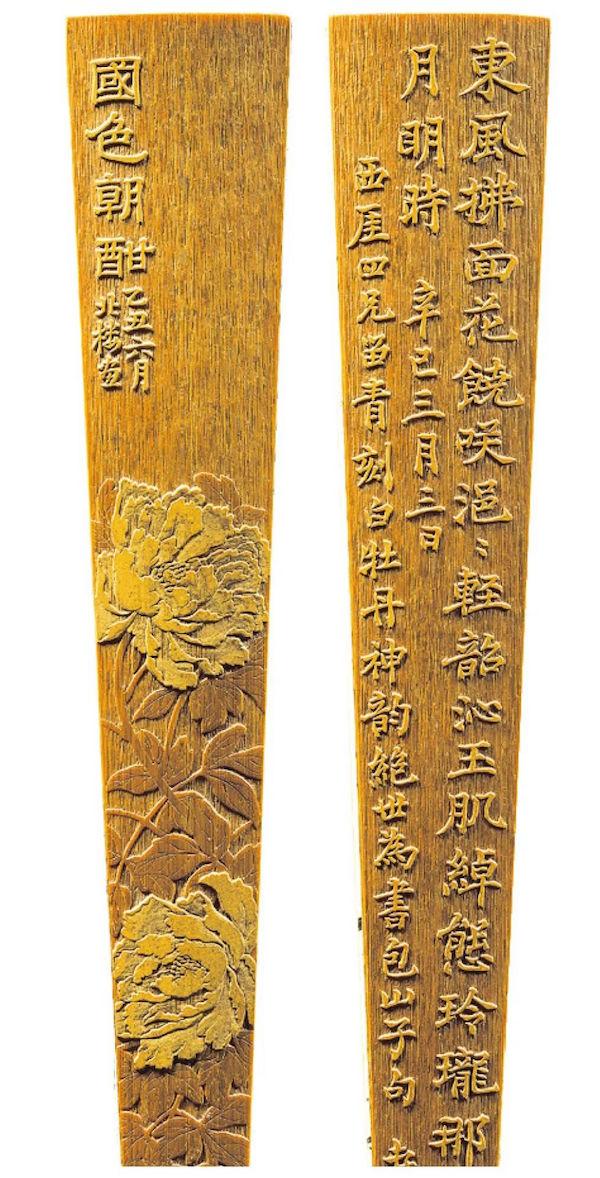 國色朝酣
乙丑六月
北楼画
東風拂面花饒咲浥〻軽韶沁玉肌綽態玲瓏那
月明時 辛巳三月三日
西厓四兄留青刻白牡丹神韵絕世為書包山子句